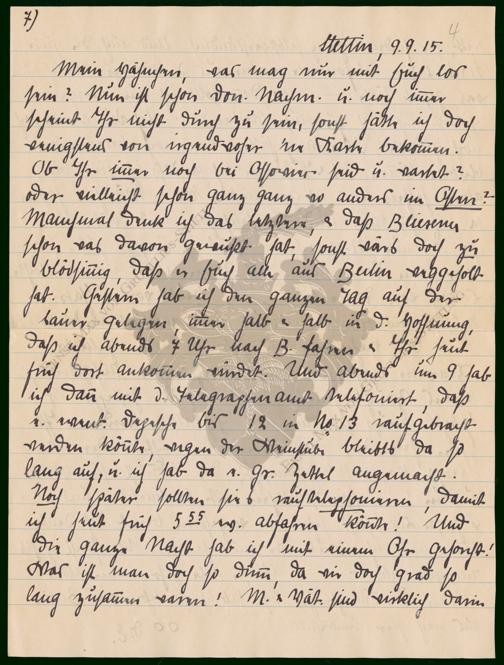 7)
4
Stettin, 9.9.15.
Mein Hähnchen, was mag nur mit Euch los
sein? Nun ist schon Don. Nachm. u. noch immer
scheint Ihr nicht durch zu sein, sonst hätte ich doch
wenigstens von irgendwoher 'ne Karte bekommen.
Ob Ihr immer noch bei Ossowiec seid u. wartet?
oder vielleicht schon ganz ganz wo anders im Osten?
Manchmal denk ich das letztere, & daß Bliesener
schon was davon gewußt hat, sonst wärs doch zu
blödsinnig, daß er Euch alle aus Berlin weggeholt
hat. Gestern hab ich den ganzen Tag auf der
Lauer gelegen, immer halb & halb in d. Hoffnung,
daß ich abends 7 Uhr nach B. fahren & Ihr heut
früh dort ankommen würdet. Und abends um 9 hab
ich dann mit d. Telegraphenamt telefoniert, daß
e. event. Depesche bis 12 in No 13 raufgebracht
werden könnte, wegen der Weinstube bleibts da so
lang auf, u. ich hab da e. gr. Zettel angemacht.
Noch später sollten sie's rauftelephonieren, damit
ich heut früh 5 55 ev. abfahren könnte! Und
die ganze Nacht hab ich mit einem Ohr gehorcht!
Was ist man doch so dumm, da wir doch grad so
lang zusammen waren! M. & Vat. sind wirklich darin